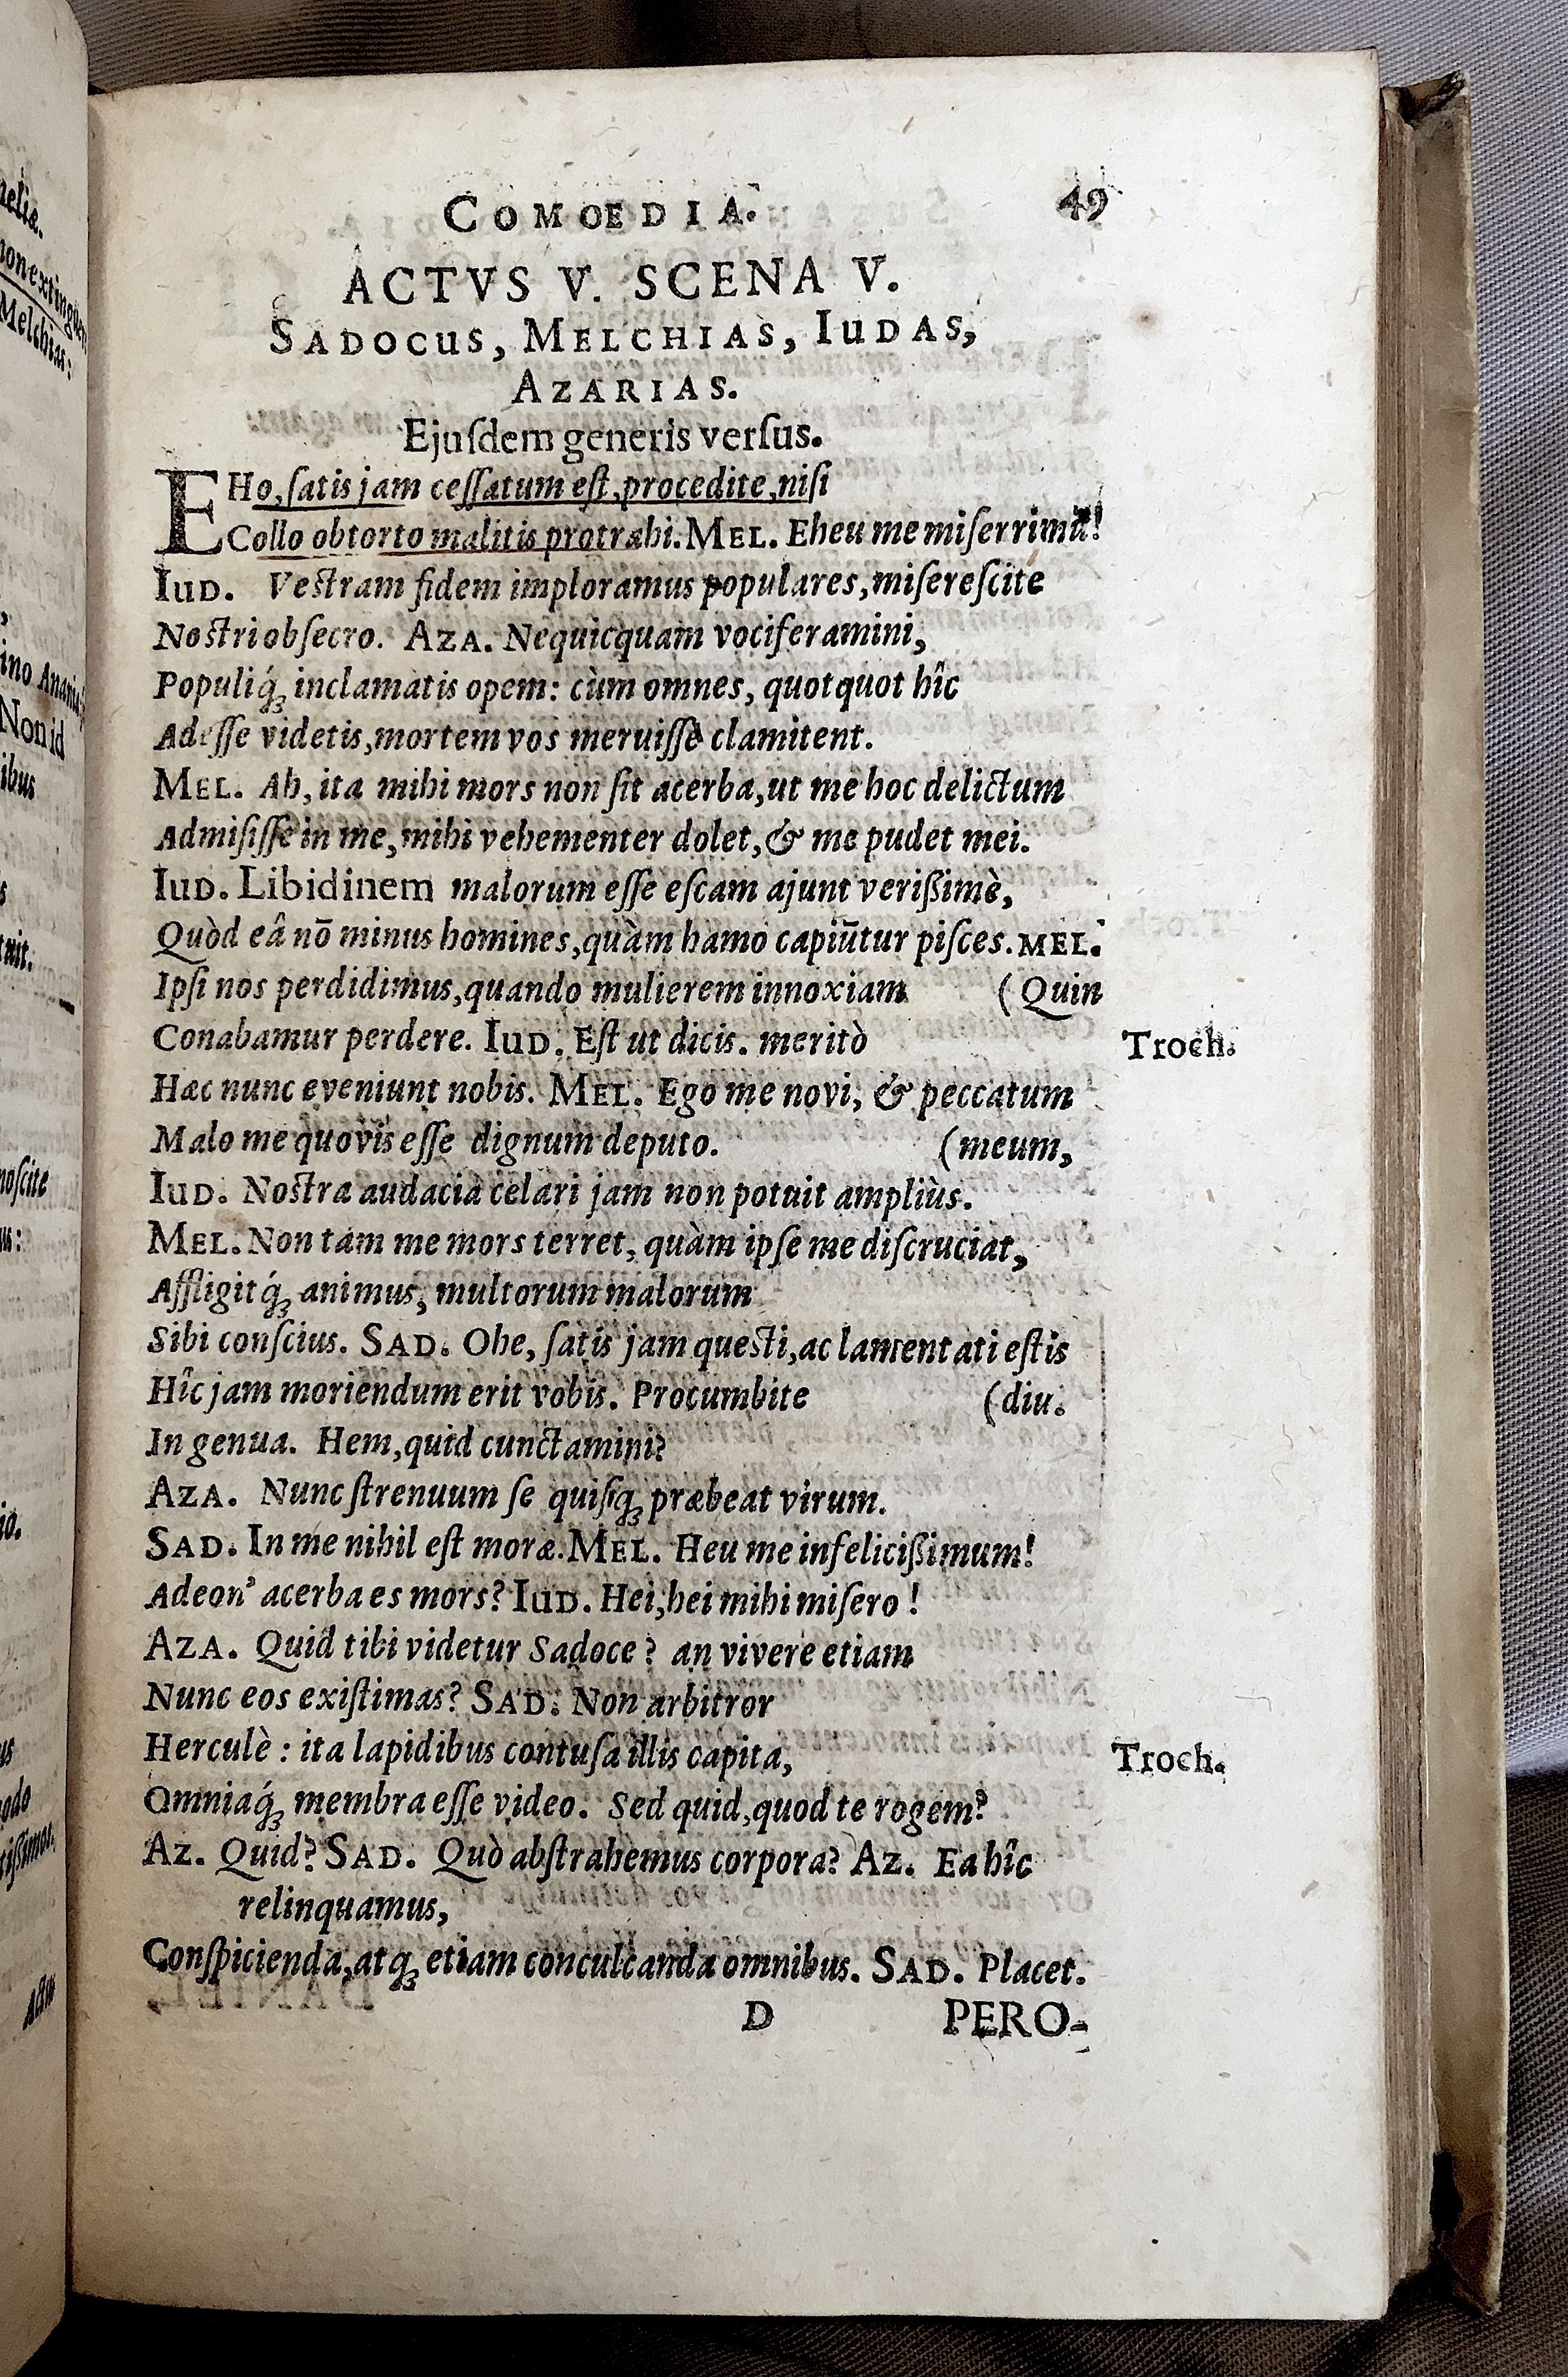 COMOEDIA. 49
ACTVS V. SCENA V.
SADOCUS, MELCHIAS, IUDAS,
AZARIAS.
Ejuſdem generis verſus.
EHo, ſatis jam ceſſatum eſt, procedite, niſi
Collo obtorto malitis protrahi. MEL. Eheu me miſerrimũ!
IUD. Veſtram fidem imploramus populares, miſereſcite
Noſtri obſecro. AZA. Nequicquam vociferamini,
Populiq́ꝫ inclamatis opem: cùm omnes, quotquot hîc
Adeſſe videtis, mortem vos meruiſſe clamitent.
MEL. Ah, ita mihi mors non ſit acerba, ut me hoc delictum
Admiſiſſe in me, mihi vehementer dolet, & me pudet mei.
IUD. Libidinem malorum eſſe eſcam ajunt verißimè,
Quòd eâ nō minus homines, quàm hamo capiūtur piſces. MEL.
Ipſi nos perdidimus, quando mulierem innoxiam (Quin
Conabamur perdere. IUD. Eſt ut dicis. meritò Troch.
Hæc nunc eveniunt nobis. MEL. Ego me novi, & peccatum
Malo me quovis eſſe dignum deputo. (meum,
IUD. Noſtra audacia celari jam non potuit ampliùs.
MEL. Non tam me mors terret, quàm ipſe me diſcruciat,
Affligitq́ꝫ animus, multorum malorum
Sibi conſcius. SAD. Ohe, ſatis jam queſti, ac lamentati eſtis
Hîc jam moriendum erit vobis. Procumbite (diu.
In genua. Hem, quid cunctamini?
AZA. Nunc ſtrenuum ſe quiſqꝫ præbeat virum.
SAD. In me nihil eſt moræ. MEL. Heu me infelicißimum!
Adeon' acerba es mors? IUD. Hei, hei mihi miſero!
AZA. Quid tibi videtur Sadoce? an vivere etiam
Nunc eos exiſtimas? SAD. Non arbitror
Herculè: ita lapidibus contuſa illis capita, Troch.
Omniaq́ꝫ membra eſſe video. Sed quid, quod te rogem?
AZ. Quid? SAD. Quò abſtrahemus corpora? AZ. Ea hîc
relinquamus,
Conſpicienda, atqꝫ etiam conculcanda omnibus. SAD. Placet.
D PERO-